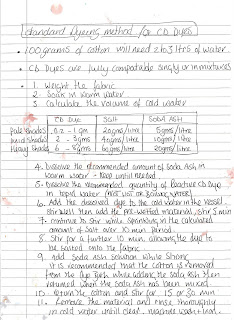 Standard Dyeing Method for CD Dyes
• 100 grams of cotton will need 2 to 3 ltrs of water
• CD Dyes are fully compatable singly or in mixtures
1. Weight the fabric
2. Soak in warm water
3. Calculate the volume of cold water
CD Dye Salt Soda Ash
Pale Shades 0.2 - 1 gm 20gms/litre 5gms/litre
Shades 2 - 3gms 40gms/litre 10gms/litre
Heavy Shades 6 - 8gms 60gms/litre 10gms/litre
4. Dissolve the recommended amount of Soda Ash in
warm water - keep until needed
5. Dissolve the recommended quantity of Reactive CD Dye
in tepid water (Not hot or boiling water)
6. Add the dissolved dye to the cold water in the vessel
Stir well then add the pre-wetted material, stir 5 min
7. continue to stir while sprinkling in the calculated
amount of salt over 10 min period
8. Stir for a further 10 min allowing the dye to
be salted onto the fabric
9. Add Soda Ash solution while stirring
it is recommended that the cotton is removed
from the dye bath while adding the soda ash then
returned when the soda ash has been mixed
10. Return the cotton and stir for 15 or 30 min
11. Remove the material and rinse thoroughly
in cold water until clear.